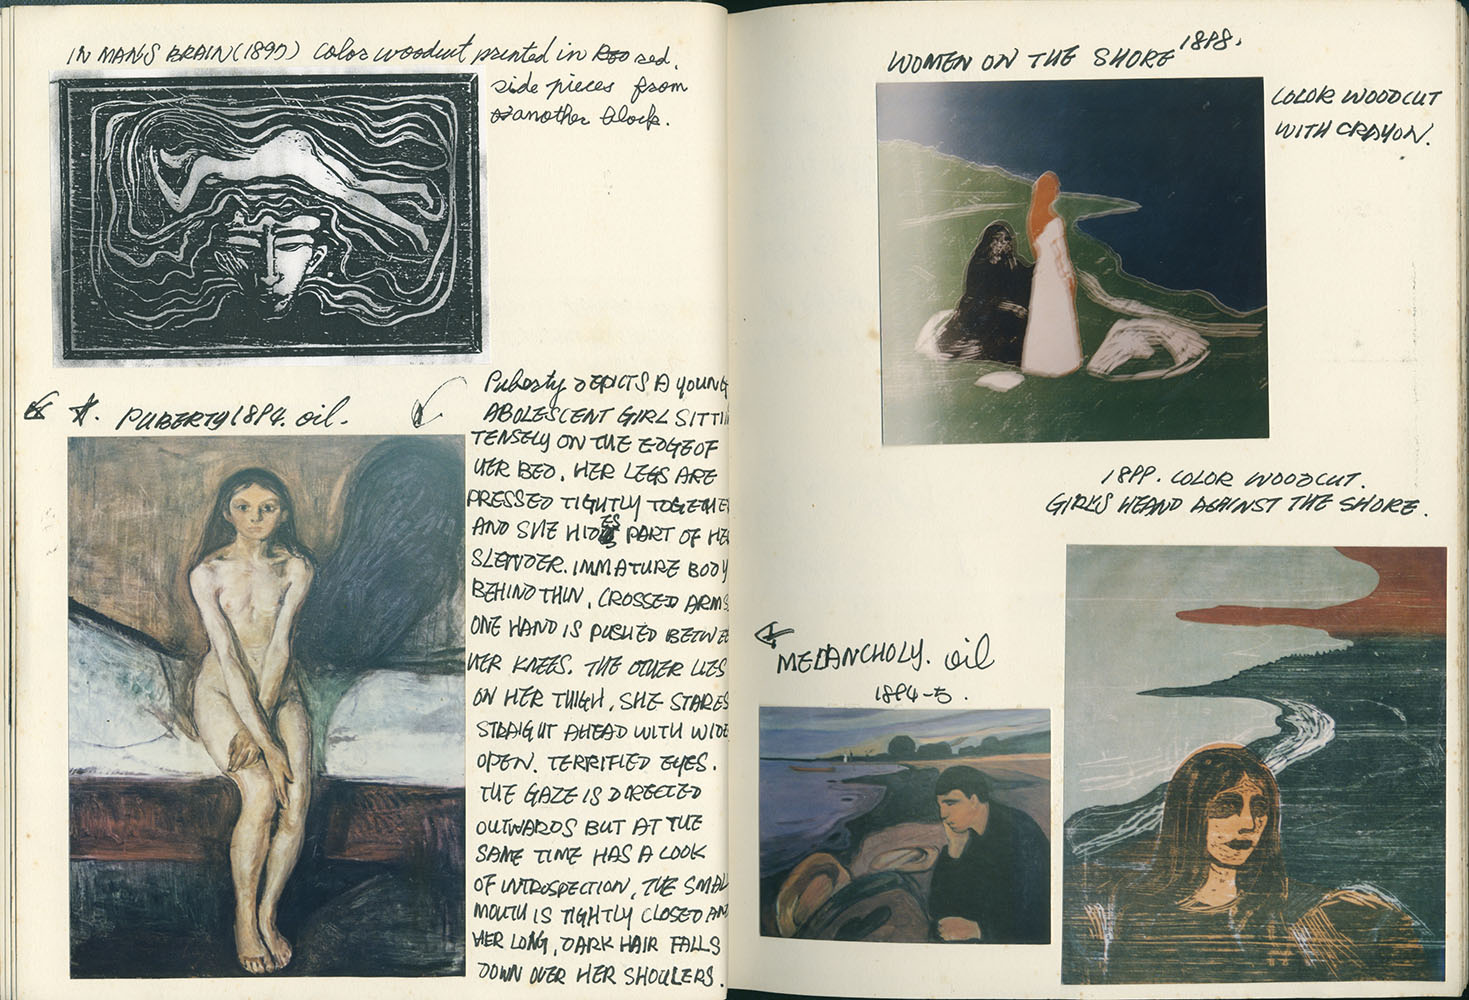 IN MAN'S BRAIN (1897) Color woodcut printed in red.
side pieces from
another block.
PUBERTY 1894. oil.
Puberty DEPICTS A YOUNG
ABOLESCENT GIRL SITTI
TENSELY ON THE EDGE OF
HER BED. HER LEGS ARE
PRESSED TIGHTLY TOGETHE
AND SHE HIDES PART OF HE
SLENDER. IMMATURE BODY
BEHIND THIN, CROSSED ARMS.
ONE HAND IS PUSHED BETWE
HER KNEES. THE OTHER LIES
ON HER THIGH, SHE STARES
STRAIGHT AHEAD WITH WIDE
OPEN. TERRIFIED EYES.
THE GAZE IS DIRECTED
OUTWARDS BUT AT THE
SAME TIME HAS A LOOK
OF INTROSPECTION, THE SMAL
MOUTH IS TIGHTLY CLOSED AN
HER LONG, DARK HAIR FALLS
DOWN OVER HER SHOULERS.
WOMEN ON THE SHORE 1898.
COLOR WOODCUT
WITH CRAYON.
1899. COLOR WOODCUT.
GIRL'S HEAND AGAINST THE SHORE.
MELANCHOLY. oil
1894-5.